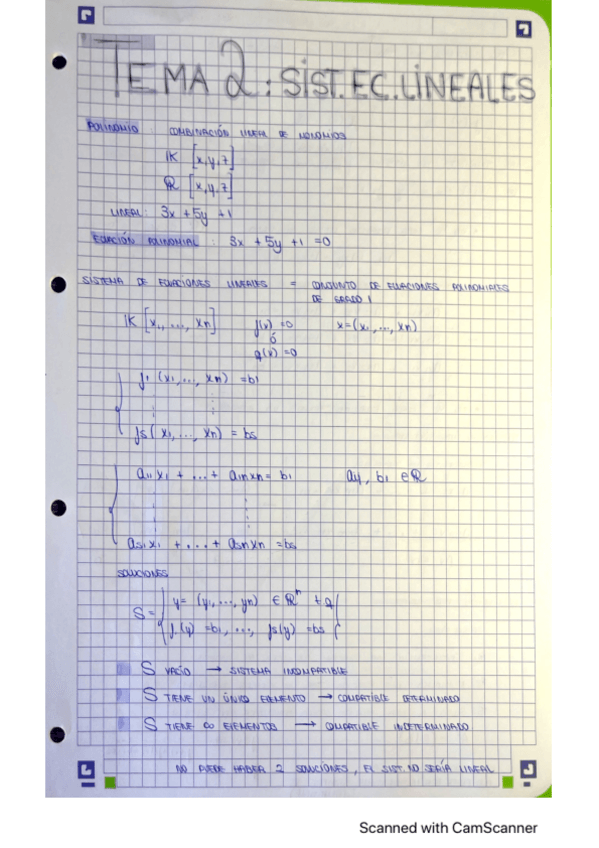 TEMA 2: SIST. EC. LINEALES
POLINOMIO: COMBINACIÓN LINEAL DE MONOMIOS
IK [x,y,z]
ℝ [x,y,z]
LINEAL: 3x + 5y + 1
ECUACIÓN POLINOMIAL: 3x + 5y + 1 = 0
SISTEMA DE ECUACIONES LINEALES = CONJUNTO DE ECUACIONES POLINOMIALES
DE GRADO 1
IK [x1, ..., xn] f(x) = 0 x = (x1, ..., xn)
ó
g(x) = 0
f1 (x1, ..., xn) = b1
fs (x1, ..., xn) = bs
a11 x1 + ... + a1n xn = b1 aij, bi ∈ ℝ
as1 x1 + ... + asn xn = bs
SOLUCIONES
S = { y = (y1, ..., yn) ∈ ℝⁿ t.q
f1(y) = b1, ..., fs(y) = bs }
S VACÍO → SISTEMA INCOMPATIBLE
S TIENE UN ÚNICO ELEMENTO → COMPATIBLE DETERMINADO
S TIENE ∞ ELEMENTOS → COMPATIBLE INDETERMINADO
NO PUEDE HABER 2 SOLUCIONES, EL SIST. NO SERÍA LINEAL
Scanned with CamScanner